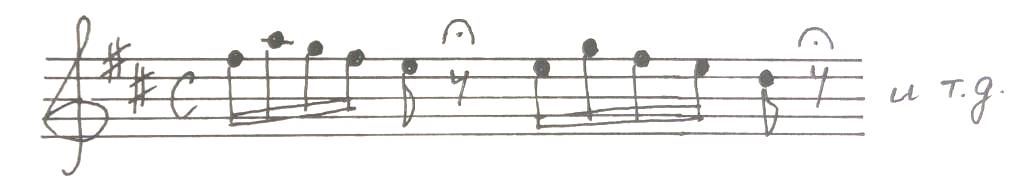 и т.д.